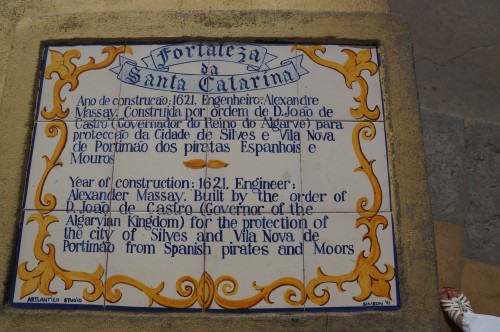 Fortaleza
da
Santa Catarina
Ano de construcão: 1621. Engenheiro: Alexandre
Massay. Construida por ordem de D. João de
Castro (Governador do Reino do Algarve) para
protecção da Cidade de Silves e Vila Nova
de Portimão dos piratas Espanhois e
Mouros
Year of construction: 1621. Engineer:
Alexander Massay. Built by the order of
D. João de Castro (Governor of the
Algarvian Kingdom) for the protection of
the city of Silves and Vila Nova de
Portimão from Spanish pirates and Moors
Artlantico Studio